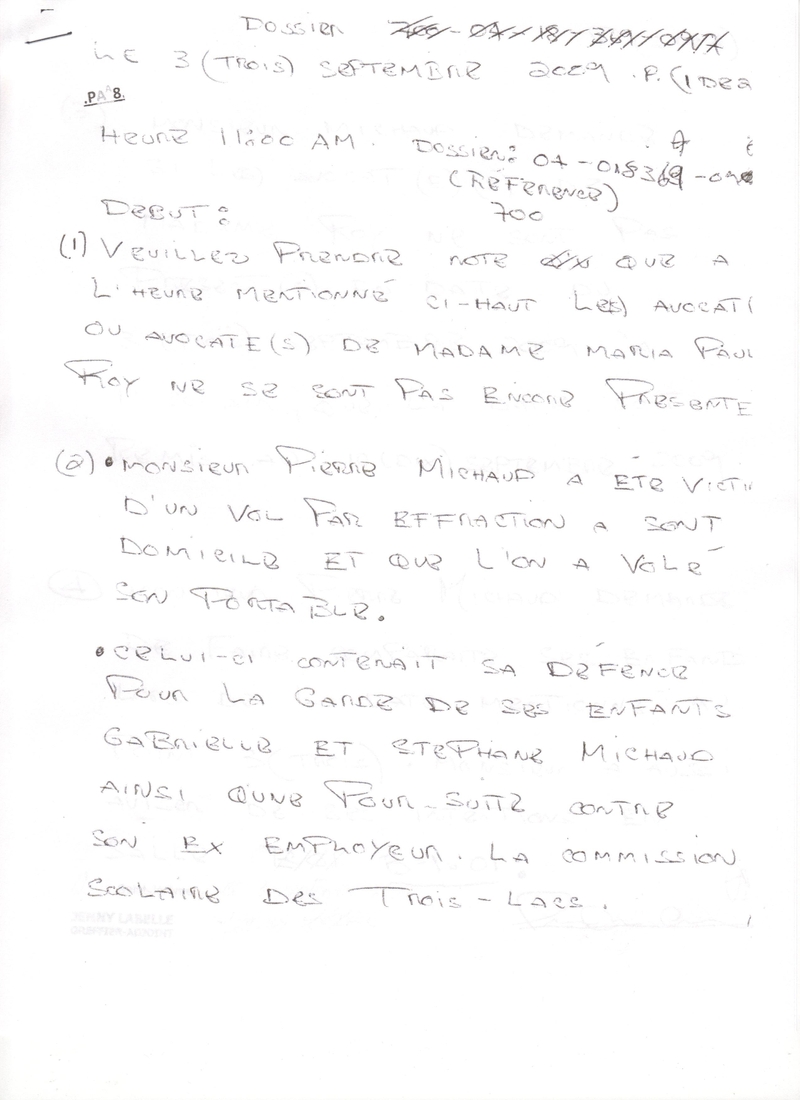 DOSSIER
LE 3 (TROIS) SEPTEMBRE 2009 . P. (1 DE 2
.PA 8.
HEURE 11:00 AM. DOSSIER: 04-018369-
(RÉFÉRENCE)
700
DEBUT:
(1) VEUILLEZ PRENDRE NOTE QUE A
L'HEURE MENTIONNÉ CI-HAUT LE(S) AVOCAT(
OU AVOCATE(S) DE MADAME MARIA PAUL
ROY NE SE SONT PAS ENCORE PRESENTE
(2) • MONSIEUR PIERRE MICHAUD A ÉTÉ VICTI
D'UN VOL PAR EFFRACTION A SONT
DOMICILE ET QUE L'ON A VOLÉ
SON PORTABLE.
• CELUI-CI CONTENAIT SA DÉFENCE
POUR LA GARDE DE SES ENFANTS
GABRIELLE ET STEPHANE MICHAUD
AINSI QUNE POUR-SUITE CONTRE
SON EX EMPLOYEUR. LA COMMISSION
SCOLAIRE DES TROIS-LACS.
JENNY LABELLE
GREFFIER-ADJOINT